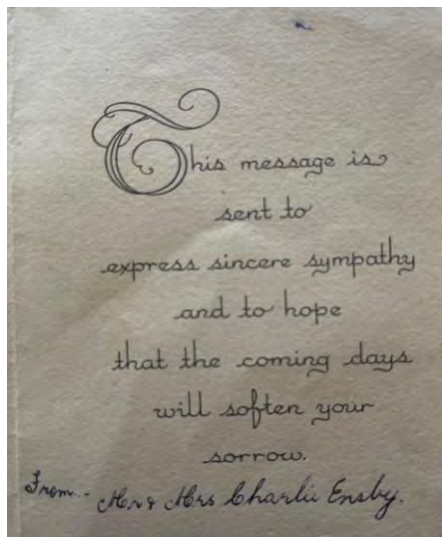 This message is
sent to
express sincere sympathy
and to hope
that the coming days
will soften your
sorrow.
From.- Mr & Mrs Charlie Ensby.